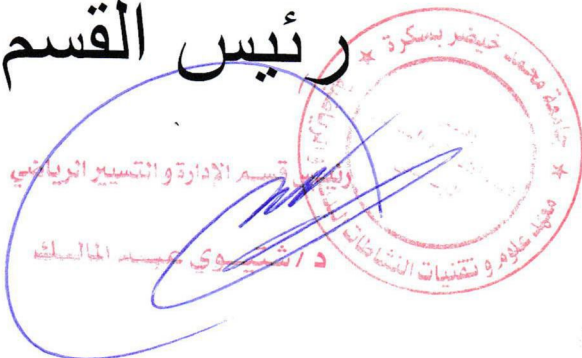 رئيس القسم
رئيس قسم الإدارة و التسيير الرياضي
د / شتيوي عبد المالك
جامعة محمد خيضر بسكرة
معهد علوم و تقنيات النشاطات